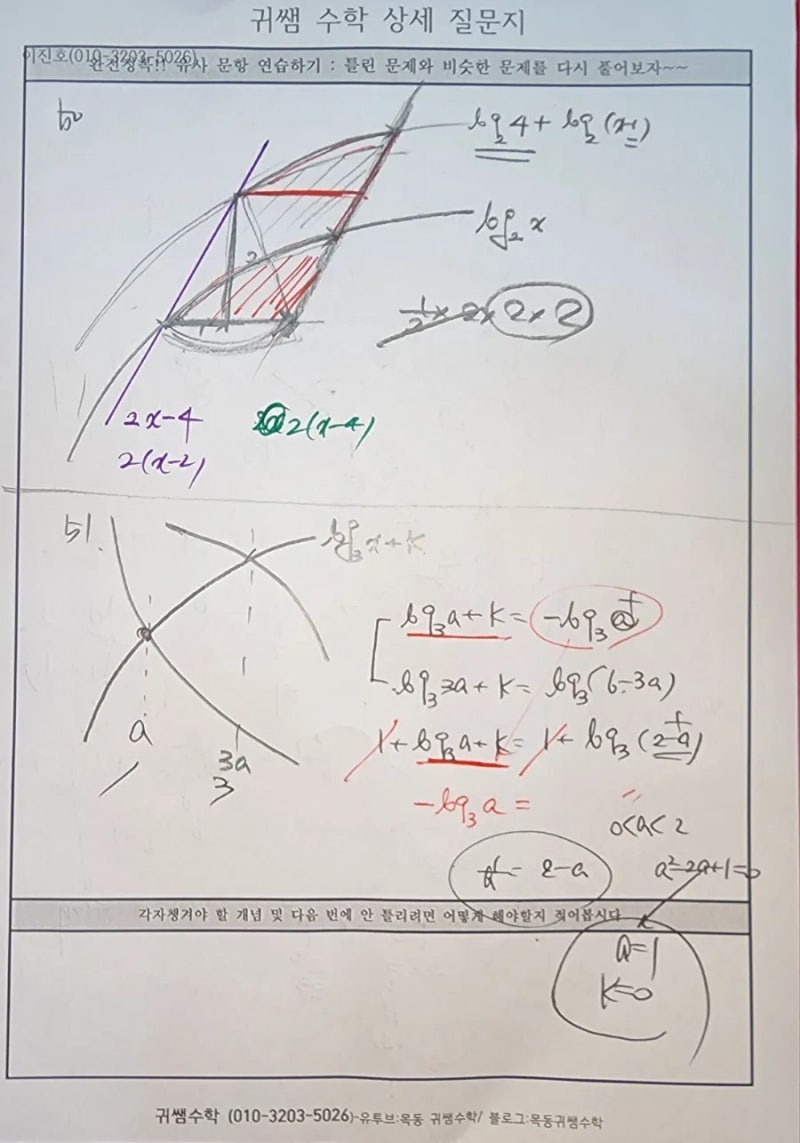 귀쌤 수학 상세 질문지
이진호(010-3203-5026)
완전정복!! 유사 문항 연습하기 : 틀린 문제와 비슷한 문제를 다시 풀어보자~~
log₂4 + log₂(x)
log₂x
½×2×2×2
2
2x-4
2(x-2)
2(x-4)
51.
log₃x+k
log₃a+k = -log₃a
log₃3a+k = log₃(6-3a)
1+log₃a+k = 1+log₃(2-a)
a
3a
3
-log₃a =
0<a<2
1/a = 2-a
a²-2a+1=0
각자챙겨야 할 개념 및 다음 번에 안 틀리려면 어떻게 해야할지 적어봅시다
a=1
k=0
귀쌤수학 (010-3203-5026)-유투브:목동 귀쌤수학/ 블로그:목동귀쌤수학